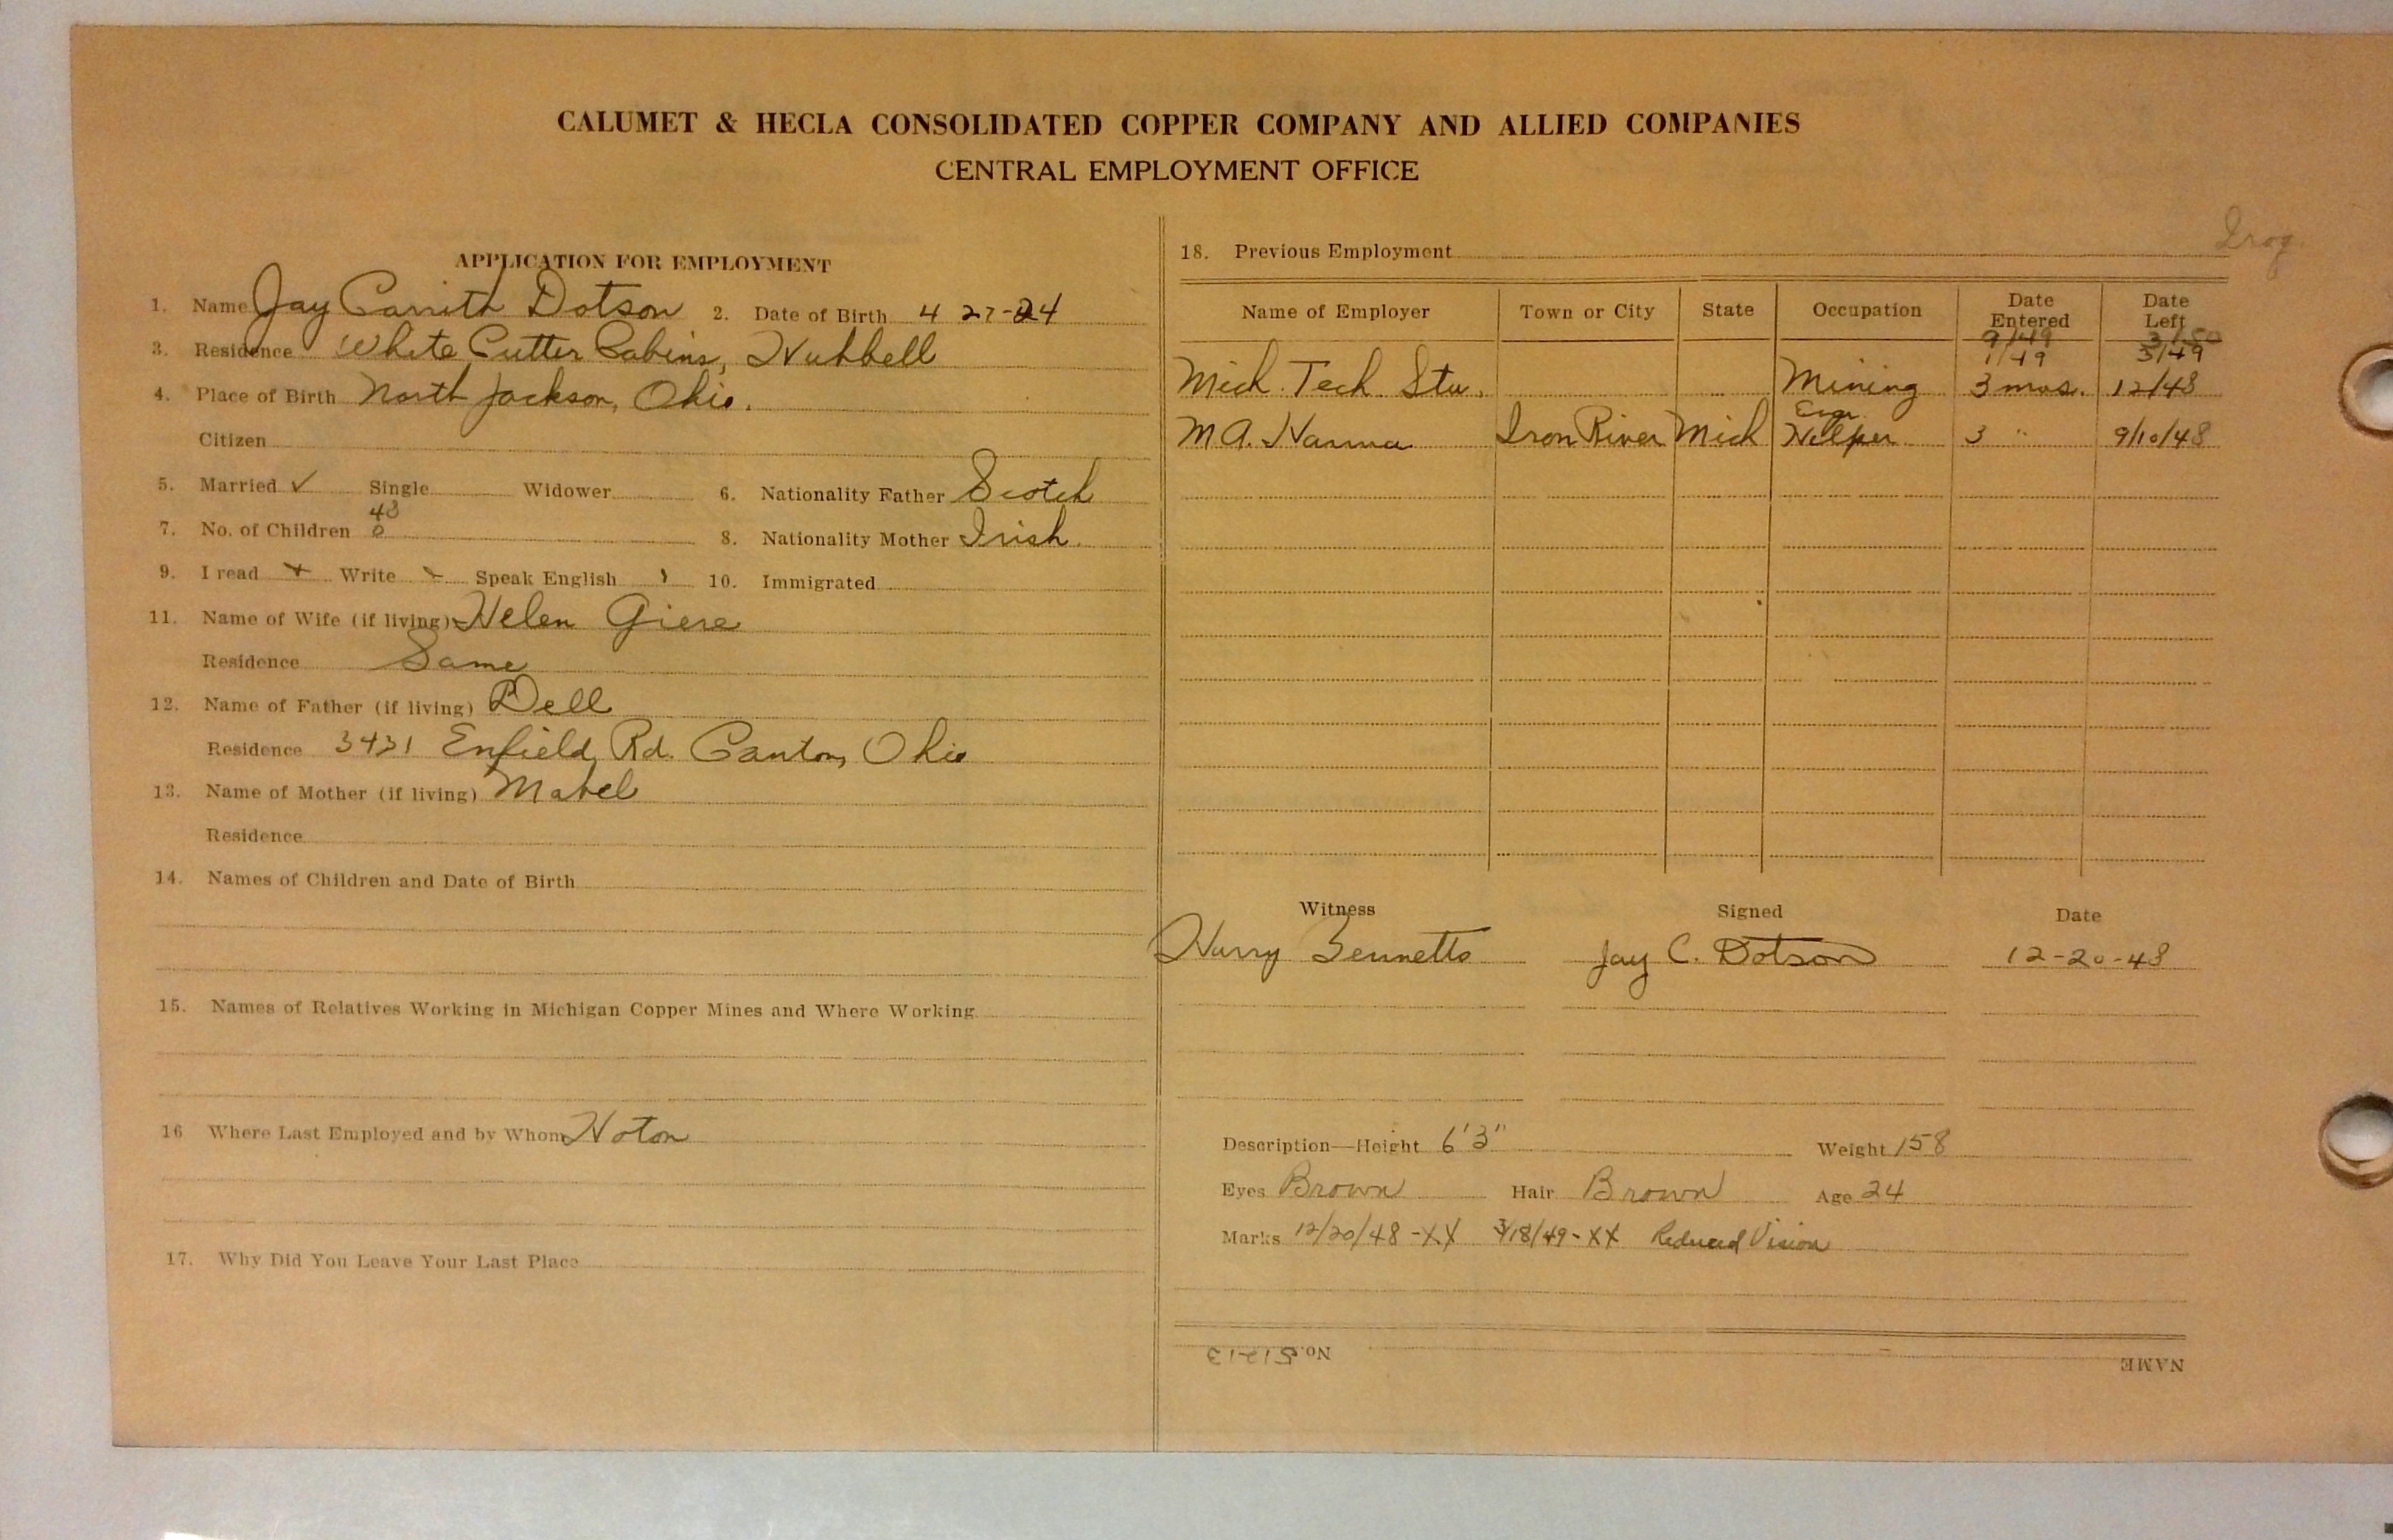 CALUMET & HECLA CONSOLIDATED COPPER COMPANY AND ALLIED COMPANIES
CENTRAL EMPLOYMENT OFFICE
APPLICATION FOR EMPLOYMENT
1. Name Jay Carrith Dotson 2. Date of Birth 4 27-24
3. Residence White Cutter Cabins, Hubbell
4. Place of Birth North Jackson, Ohio.
Citizen
5. Married ✓ Single Widower 6. Nationality Father Scotch
48
7. No. of Children 0 8. Nationality Mother Irish.
9. I read Write Speak English 10. Immigrated
11. Name of Wife (if living) Helen Giere
Residence Same
12. Name of Father (if living) Dell
Residence 3431 Enfield Rd. Canton, Ohio
13. Name of Mother (if living) Mabel
Residence
14. Names of Children and Date of Birth
15. Names of Relatives Working in Michigan Copper Mines and Where Working
16 Where Last Employed and by Whom
17. Why Did You Leave Your Last Place
18. Previous Employment
Name of Employer Town or City State Occupation Date Entered Date Left
9/49 3/50
1/49 3/49
Mich. Tech. Stu. Mining 3 mos. 12/48
M.A. Hanna Iron River Mich Engr. Helper 3 " 9/10/48
Witness Signed Date
Harry Bennetts Jay C. Dotson 12-20-48
Description—Height 6'3" Weight 158
Eyes Brown Hair Brown Age 24
Marks 12/20/48-XX 3/18/49-XX Reduced Vision
No. 51213 NAME